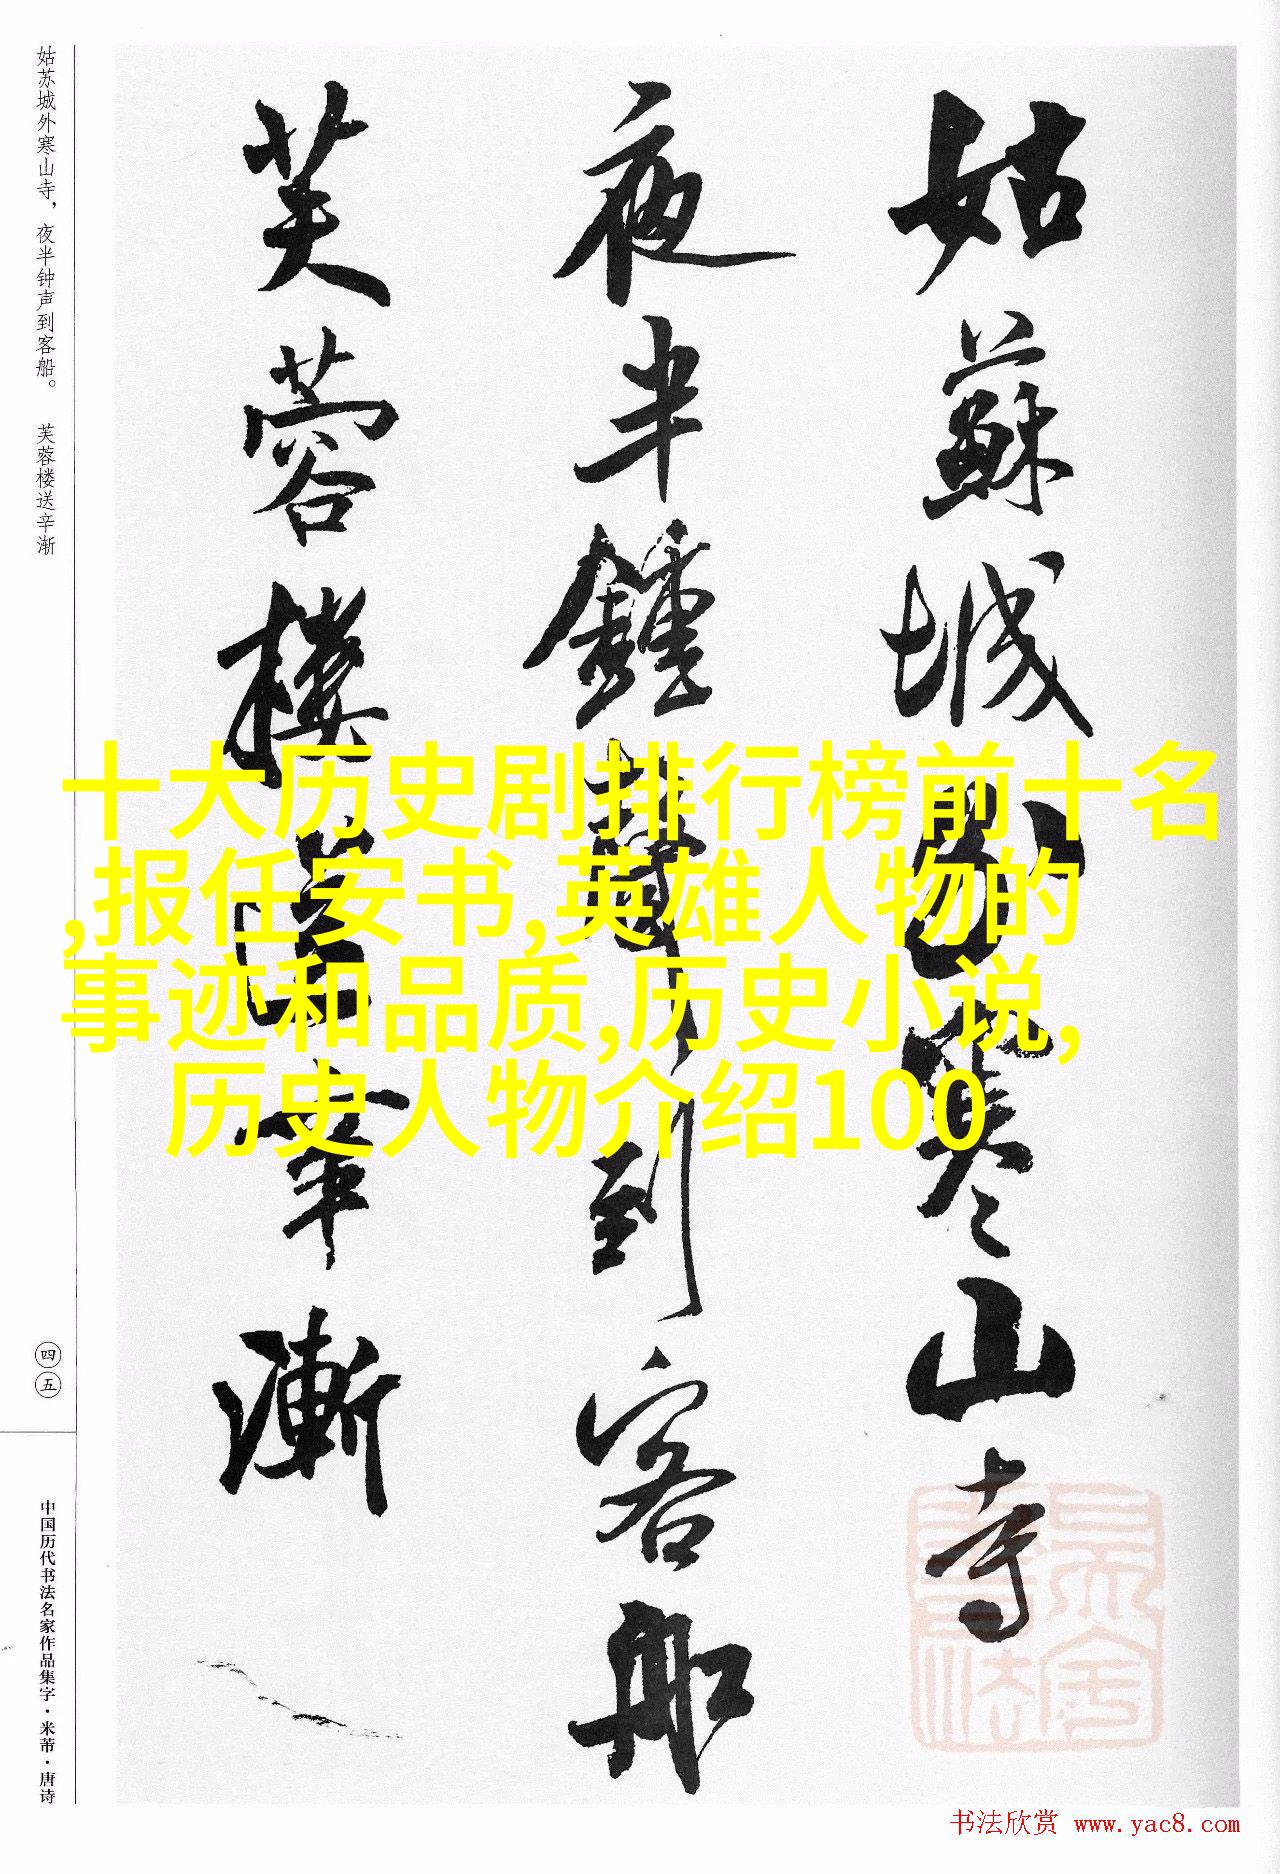 姑苏城外寒山寺，夜半钟声到客船。 芙蓉楼送辛渐
姑蘇城外寒山寺
夜半鍾聲到客船
芙蓉樓送辛漸
十大历史剧排行榜前十名
,报任安书,英雄人物的
事迹和品质,历史小说,
历史人物介绍100
四五
中国历代书法名家作品集字·米芾·唐诗
书法欣赏 www.yac8.com